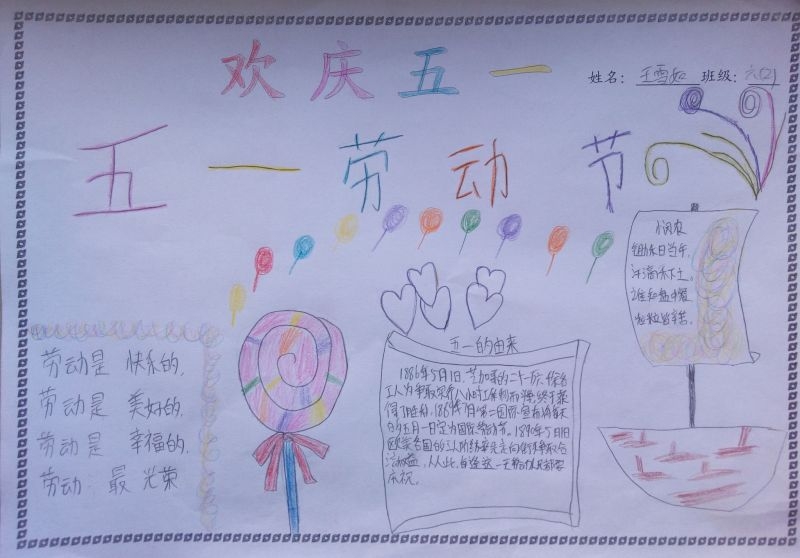 欢庆五一
姓名：王雪如 班级：六(2)
五一劳动节
悯农
锄禾日当午，
汗滴禾下土。
谁知盘中餐
粒粒皆辛苦。
劳动是 快乐的，
劳动是 美好的，
劳动是 幸福的，
劳动 最 光荣
五一的由来
1886年5月1日，芝加哥的二十一万
工人为争取实行八小时工作制而 终于获
得了胜利，1889年7月第二国际宣布将每年
的五月一日定为国际劳动节。1890年5月1日
欧美各国的工人阶级率先走向街头争取合
法权益，从此，每逢这一天 都要
庆祝。